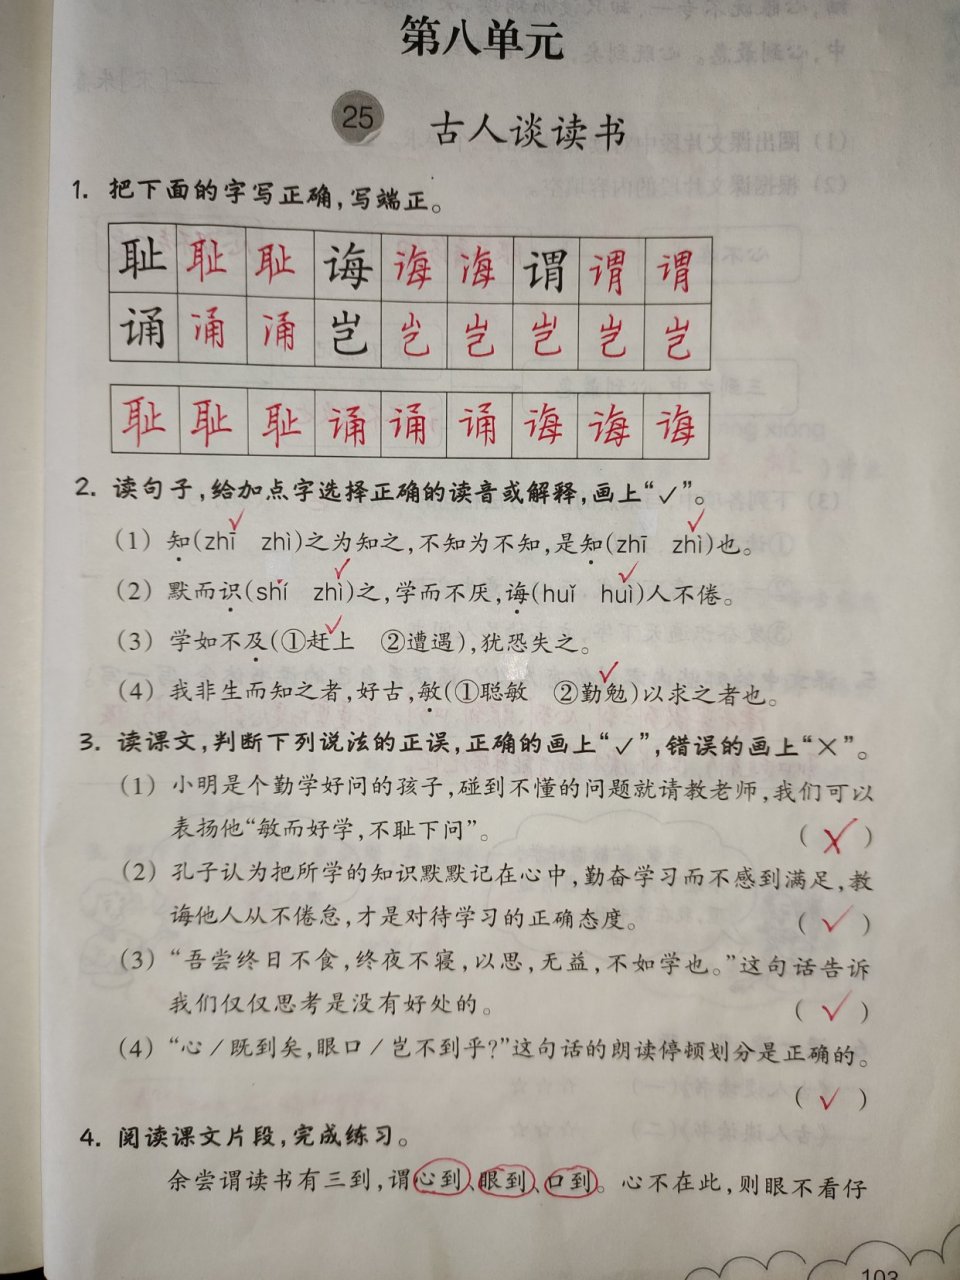 第八单元
25 古人谈读书
1. 把下面的字写正确,写端正。
耻 耻 耻 诲 诲 诲 谓 谓 谓
诵 诵 诵 岂 岂 岂 岂 岂 岂
耻 耻 耻 诵 诵 诵 诲 诲 诲
2. 读句子,给加点字选择正确的读音或解释,画上“✓”。
(1) 知(zhī✓ zhì)之为知之,不知为不知,是知(zhī zhì✓)也。
(2) 默而识(shí zhì✓)之,学而不厌,诲(huǐ huì✓)人不倦。
(3) 学如不及(①赶上✓ ②遭遇),犹恐失之。
(4) 我非生而知之者,好古,敏(①聪敏 ②勤勉✓)以求之者也。
3. 读课文,判断下列说法的正误,正确的画上“✓”,错误的画上“×”。
(1) 小明是个勤学好问的孩子,碰到不懂的问题就请教老师,我们可以
表扬他“敏而好学,不耻下问”。 (×)
(2) 孔子认为把所学的知识默默记在心中,勤奋学习而不感到满足,教
诲他人从不倦怠,才是对待学习的正确态度。 (✓)
(3) “吾尝终日不食,终夜不寝,以思,无益,不如学也。”这句话告诉
我们仅仅思考是没有好处的。 (✓)
(4) “心/既到矣,眼口/岂不到乎?”这句话的朗读停顿划分是正确的。
(✓)
4. 阅读课文片段,完成练习。
余尝谓读书有三到,谓心到、眼到、口到。心不在此,则眼不看仔
103